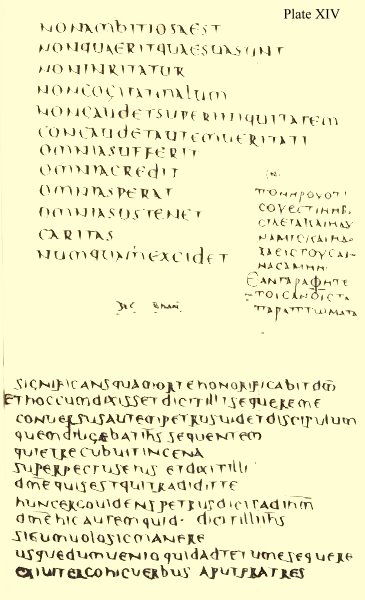 Plate XIV
NONAMBITIOSAEST
NONQUAERITQUAESUASUNT
NONINRITATUR
NONCOGITATMALUM
NONGAUDETSUPERINIQUITATEM
CONGAUDETAUTEMUERITATI
OMNIASUFFERIT
OMNIACREDIT
OMNIASPERAT
OMNIASUSTENET
CARITAS
NUMQUAMEXCIDET
ΠΟΝΗΡΟΥΟΤΙ
ϹΟΥΕϹΤΙΝΗΒΑ
ϹΙΛΕΙΑΚΑΙΗΔΥ
ΝΑΜΙϹΚΑΙΗΔΟ
ΞΑΕΙϹΤΟΥϹΑΙΩ
ΝΑϹΑΜΗΝ
ΕΑΝΓΑΡΑΦΗΤΕ
ΤΟΙϹΑΝΟΙϹΤΑ
ΠΑΡΑΠΤΩΜΑΤΑ
SIGNIFICANSQUAMORTEHONORIFICABITDM̅
ETHOCCUMDIXISSETDICITILLISEQUEREME
CONUERSUSAUTEMPETRUSUIDETDISCIPULUM
QUEMDILIGEBATIHSSEQUENTEM
QUIETRECUBUITINCENA
SUPERPECTUSEIUS ETDIXITILLI
DMEQUISESTQUITRADIDITTE
HUNCERGOUIDENSPETRUSDICITADIHM
DMEHICAUTEMQUID· DICITILLIIHS
SIEUMUOLOSICMANERE
USQUEDUMUENIOQUIDADTETUMESEQUERE
EXIUITERGOHICUERBUS APUTFRATRES